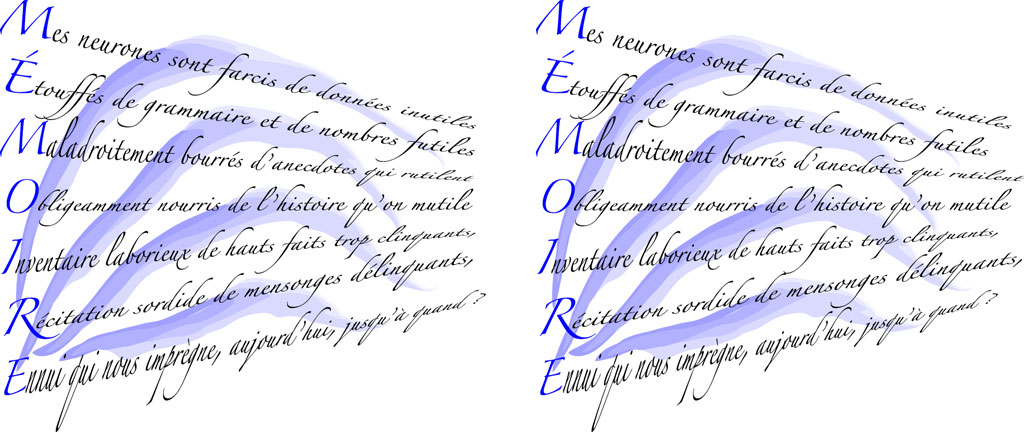 Mes neurones sont farcis de données inutiles
Étouffés de grammaire et de nombres futiles
Maladroitement bourrés d'anecdotes qui rutilent
Obligeamment nourris de l'histoire qu'on mutile
Inventaire laborieux de hauts faits trop clinquants,
Récitation sordide de mensonges délinquants,
Ennui qui nous imprègne, aujourd'hui, jusqu'à quand ?
Mes neurones sont farcis de données inutiles
Étouffés de grammaire et de nombres futiles
Maladroitement bourrés d'anecdotes qui rutilent
Obligeamment nourris de l'histoire qu'on mutile
Inventaire laborieux de hauts faits trop clinquants,
Récitation sordide de mensonges délinquants,
Ennui qui nous imprègne, aujourd'hui, jusqu'à quand ?